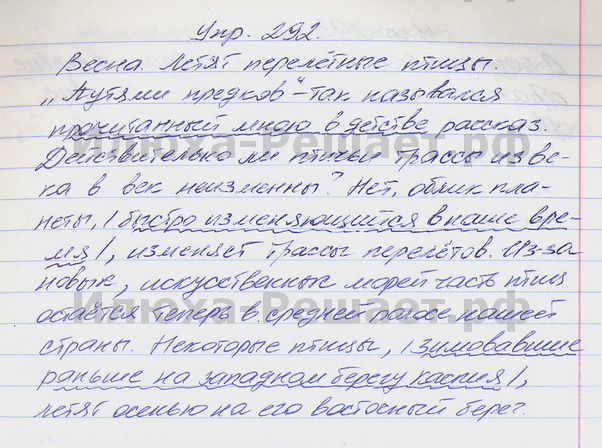 Упр. 292.
Весна. Летят перелётные птицы.
„Путями предков"-так назывался
прочитанный мною в детстве рассказ.
Действительно ли птичьи трассы из ве-
ка в век неизменны? Нет, облик пла-
неты, | быстро изменяющийся в наше вре-
мя |, изменяет трассы перелётов. Из-за
новых, искусственных морей часть птиц
остаётся теперь в средней полосе нашей
страны. Некоторые птицы, | зимовавшие
раньше на западном берегу Каспия |,
летят осенью на его восточный берег.
Илюха-Решает.рф
Илюха-Решает.рф